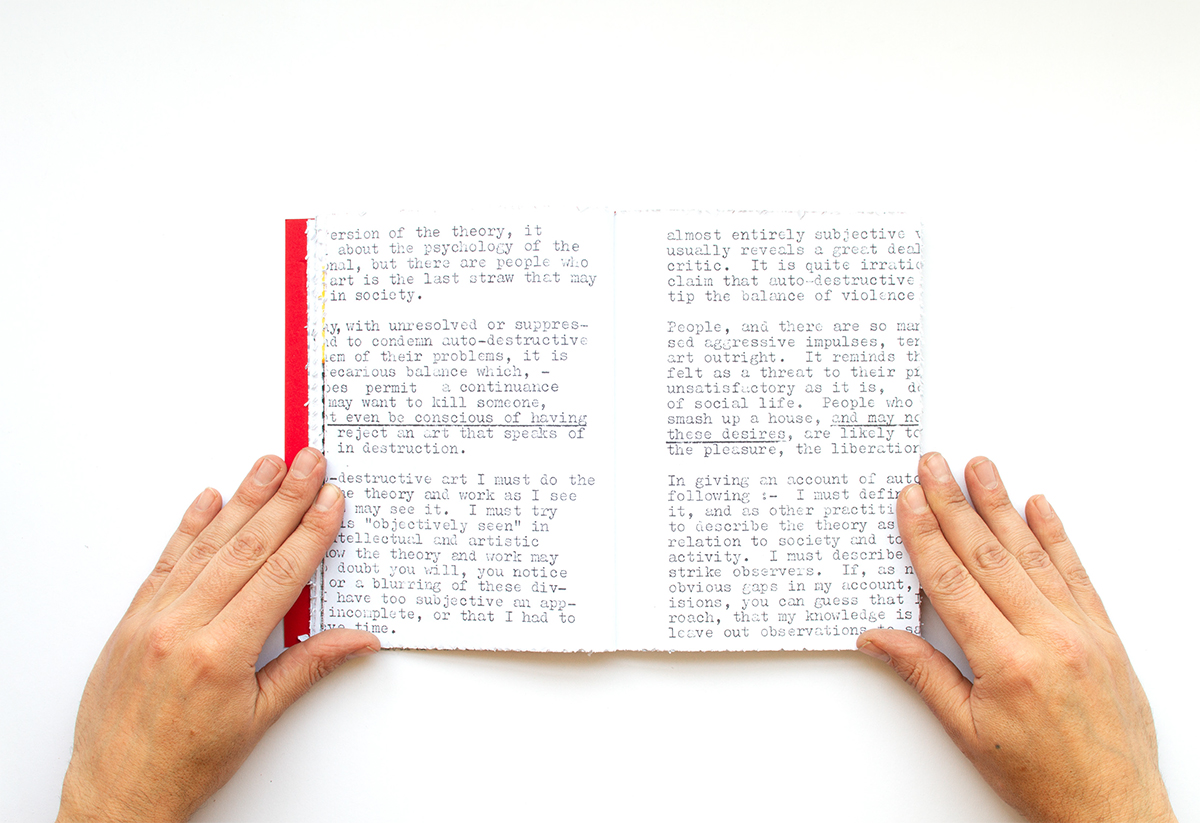 ersion of the theory, it
about the psychology of the
onal, but there are people who
art is the last straw that may
in society.
ay, with unresolved or suppres-
nd to condemn auto-destructive
em of their problems, it is
ecarious balance which, -
oes permit a continuance
may want to kill someone,
t even be conscious of having
reject an art that speaks of
in destruction.
o-destructive art I must do the
e theory and work as I see
may see it. I must try
is "objectively seen" in
tellectual and artistic
ow the theory and work may
doubt you will, you notice
or a blurring of these div-
have too subjective an app-
incomplete, or that I had to
ve time.
almost entirely subjective v
usually reveals a great deal
critic. It is quite irratio
claim that auto-destructive
tip the balance of violence
People, and there are so man
sed aggressive impulses, ten
art outright. It reminds th
felt as a threat to their pr
unsatisfactory as it is, do
of social life. People who
smash up a house, and may no
these desires, are likely to
the pleasure, the liberation
In giving an account of auto
following :- I must defin
it, and as other practiti
to describe the theory as
relation to society and to
activity. I must describe
strike observers. If, as n
obvious gaps in my account,
isions, you can guess that
roach, that my knowledge is
leave out observations to sa